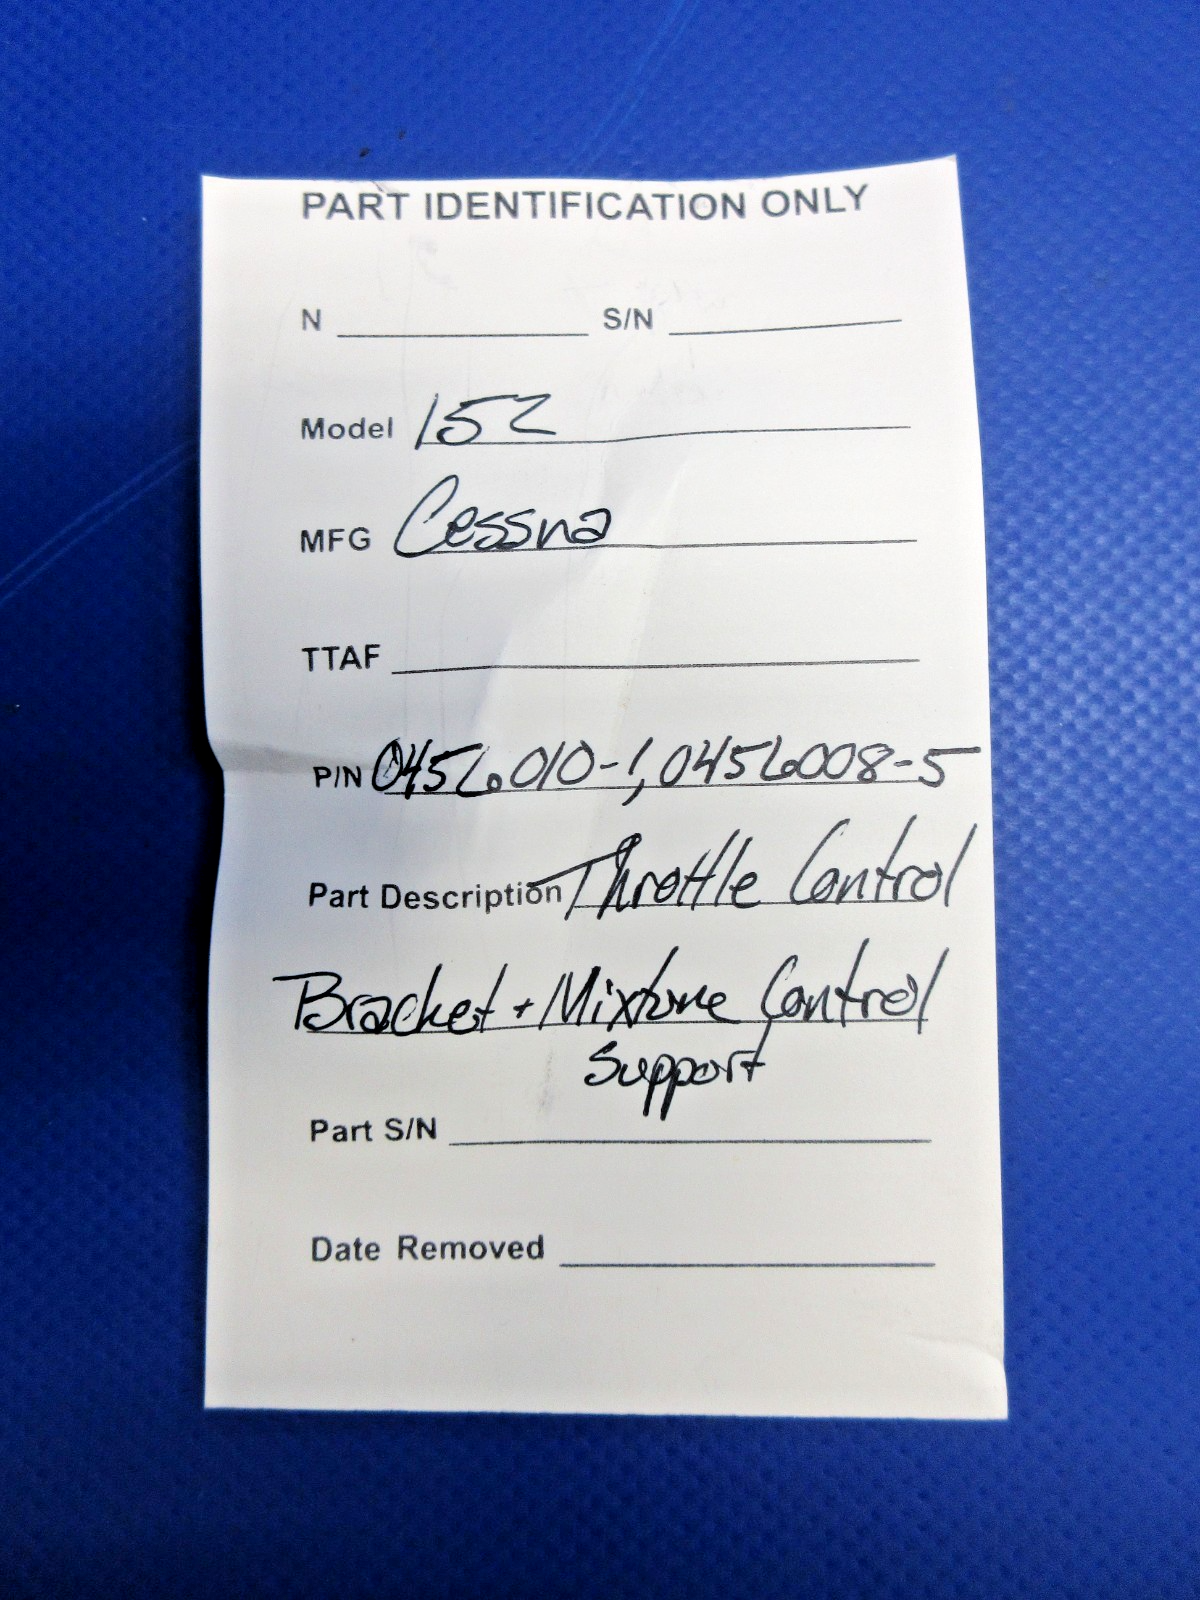 PART IDENTIFICATION ONLY
N S/N
Model 152
MFG Cessna
TTAF
P/N 0456010-1, 0456008-5
Part Description Throttle Control
Bracket + Mixture Control
Support
Part S/N
Date Removed